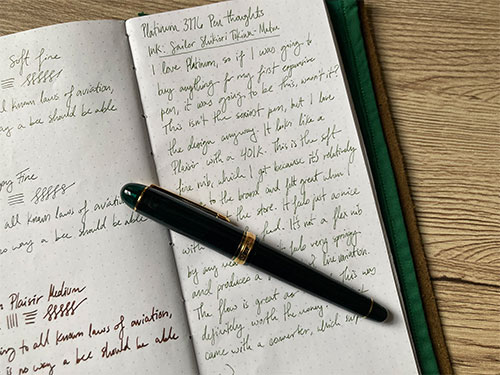 Soft fine
all known laws of aviation,
way a bee should be able
Fine
all known laws of aviation,
no way a bee should be able
Plaisir Medium
to all known laws of aviation,
is no way a bee should be able
Platinum 3776 Pen thoughts
Ink: Sailor Shikiori Tokiwa-Matsu
I love Platinum, so if I was going to
buy anything for my first expensive
pen, it was going to be this, wasn't it?
This isn't the sexiest pen, but I love
the design anyway. It looks like a
Plaisir with a 401K. This is the soft
fine nib, which I got because it's relatively
to the brand and felt great when I
the store. It feels just as nice
with
It's not a flex nib
by any
feels very springy
and produces a
line variation.
The flow is great
This was
definitely worth the money.
came with a converter, which